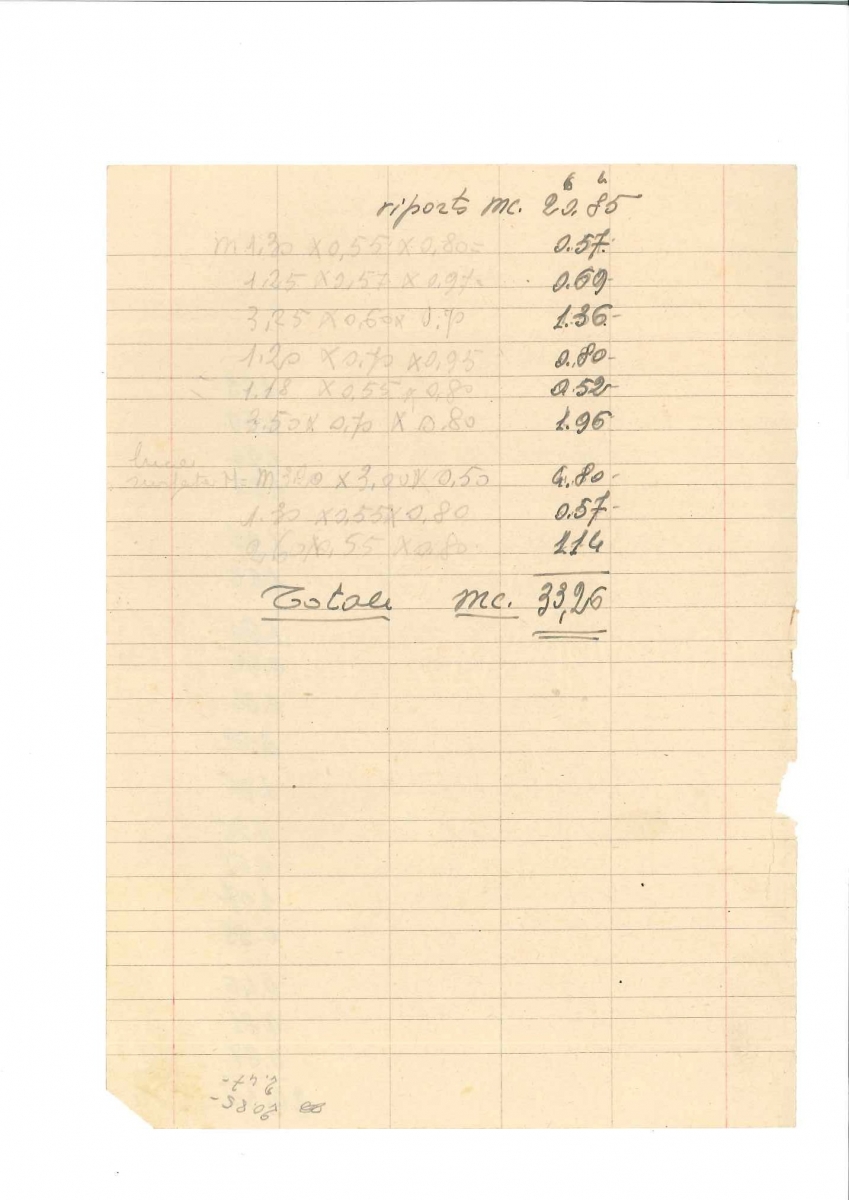 riporto mc. 20.85
m 1.30 x 0,55 x 0,80= 0.57-
1.25 x 0,57 x 0.97= 0.69-
3,25 x 0,60 x 0.70 1.36-
1.20 x 0.70 x 0.95 0.80-
1.18 x 0.55 x 0.80 0.52-
3.50 x 0.70 x 0.80 1.96
luce
M= m 3.20 x 3,00 x 0,50 4.80-
1.30 x 0.55 x 0.80 0.57-
2,60 x 0,55 x 0.80 1.14
Totale mc. 33,26
20.85-
2.47-